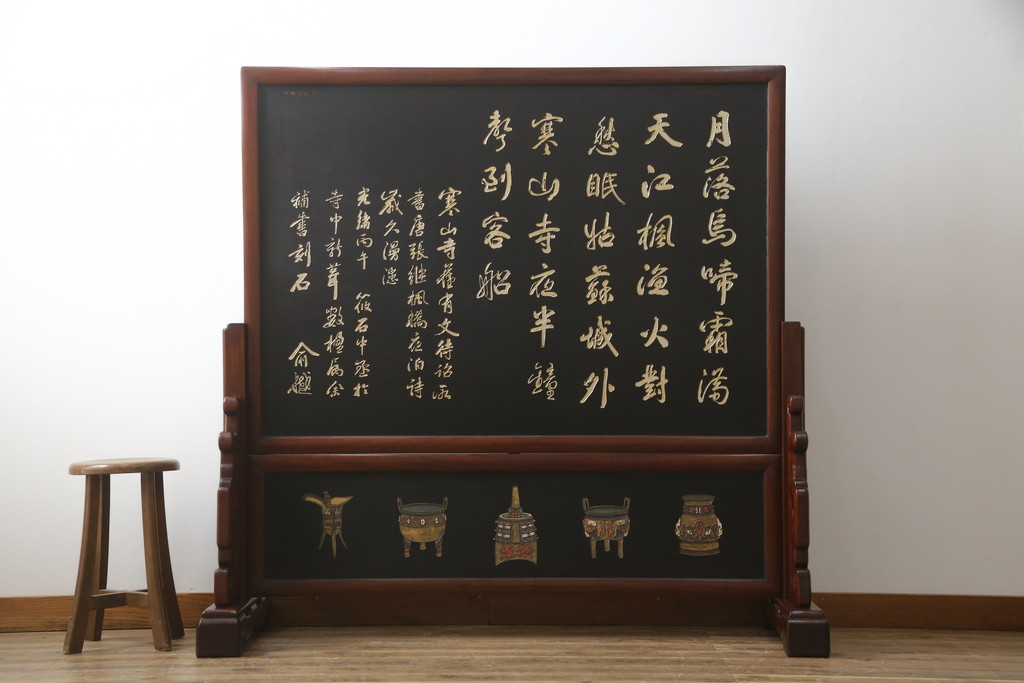 月落烏啼霜滿
天江楓漁火對
愁眠姑蘇城外
寒山寺夜半鐘
聲到客船
寒山寺舊有文待詔所
書唐張繼楓橋夜泊詩
歲久漫漶
光緒丙午 筱石中丞於
寺中新葺數楹屬余
補書刻石
俞樾